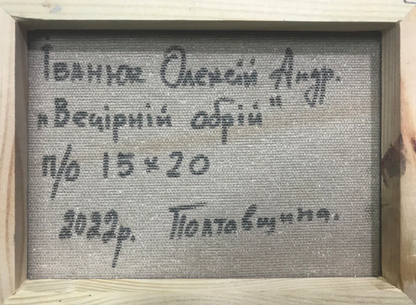 Іванюк Олексій Андр.
„Вечірній обрій"
п/о 15×20
2022р. Полтавщина.